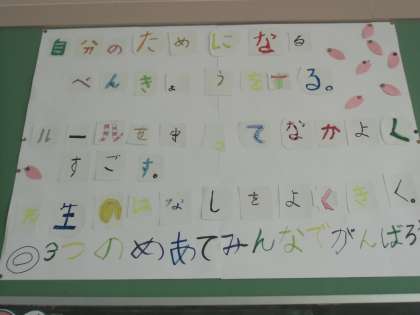 自分のためになる
べんきょうをする。
ルールを守ってなかよく
すごす。
先生のはなしをよくきく。
◎3つのめあてみんなでがんばろう